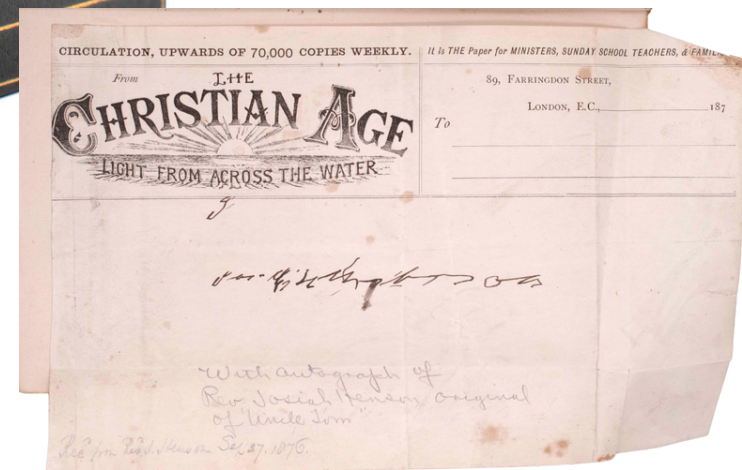 CIRCULATION, UPWARDS OF 70,000 COPIES WEEKLY.
It is THE Paper for MINISTERS, SUNDAY SCHOOL TEACHERS, &
From
THE
CHRISTIAN AGE
LIGHT FROM ACROSS THE WATER
89, FARRINGDON STREET,
LONDON, E.C., 187
To
With autograph of
Rev Josiah Henson original
of "Uncle Tom"
Recd from Rev J. Henson Sep 27. 1876.